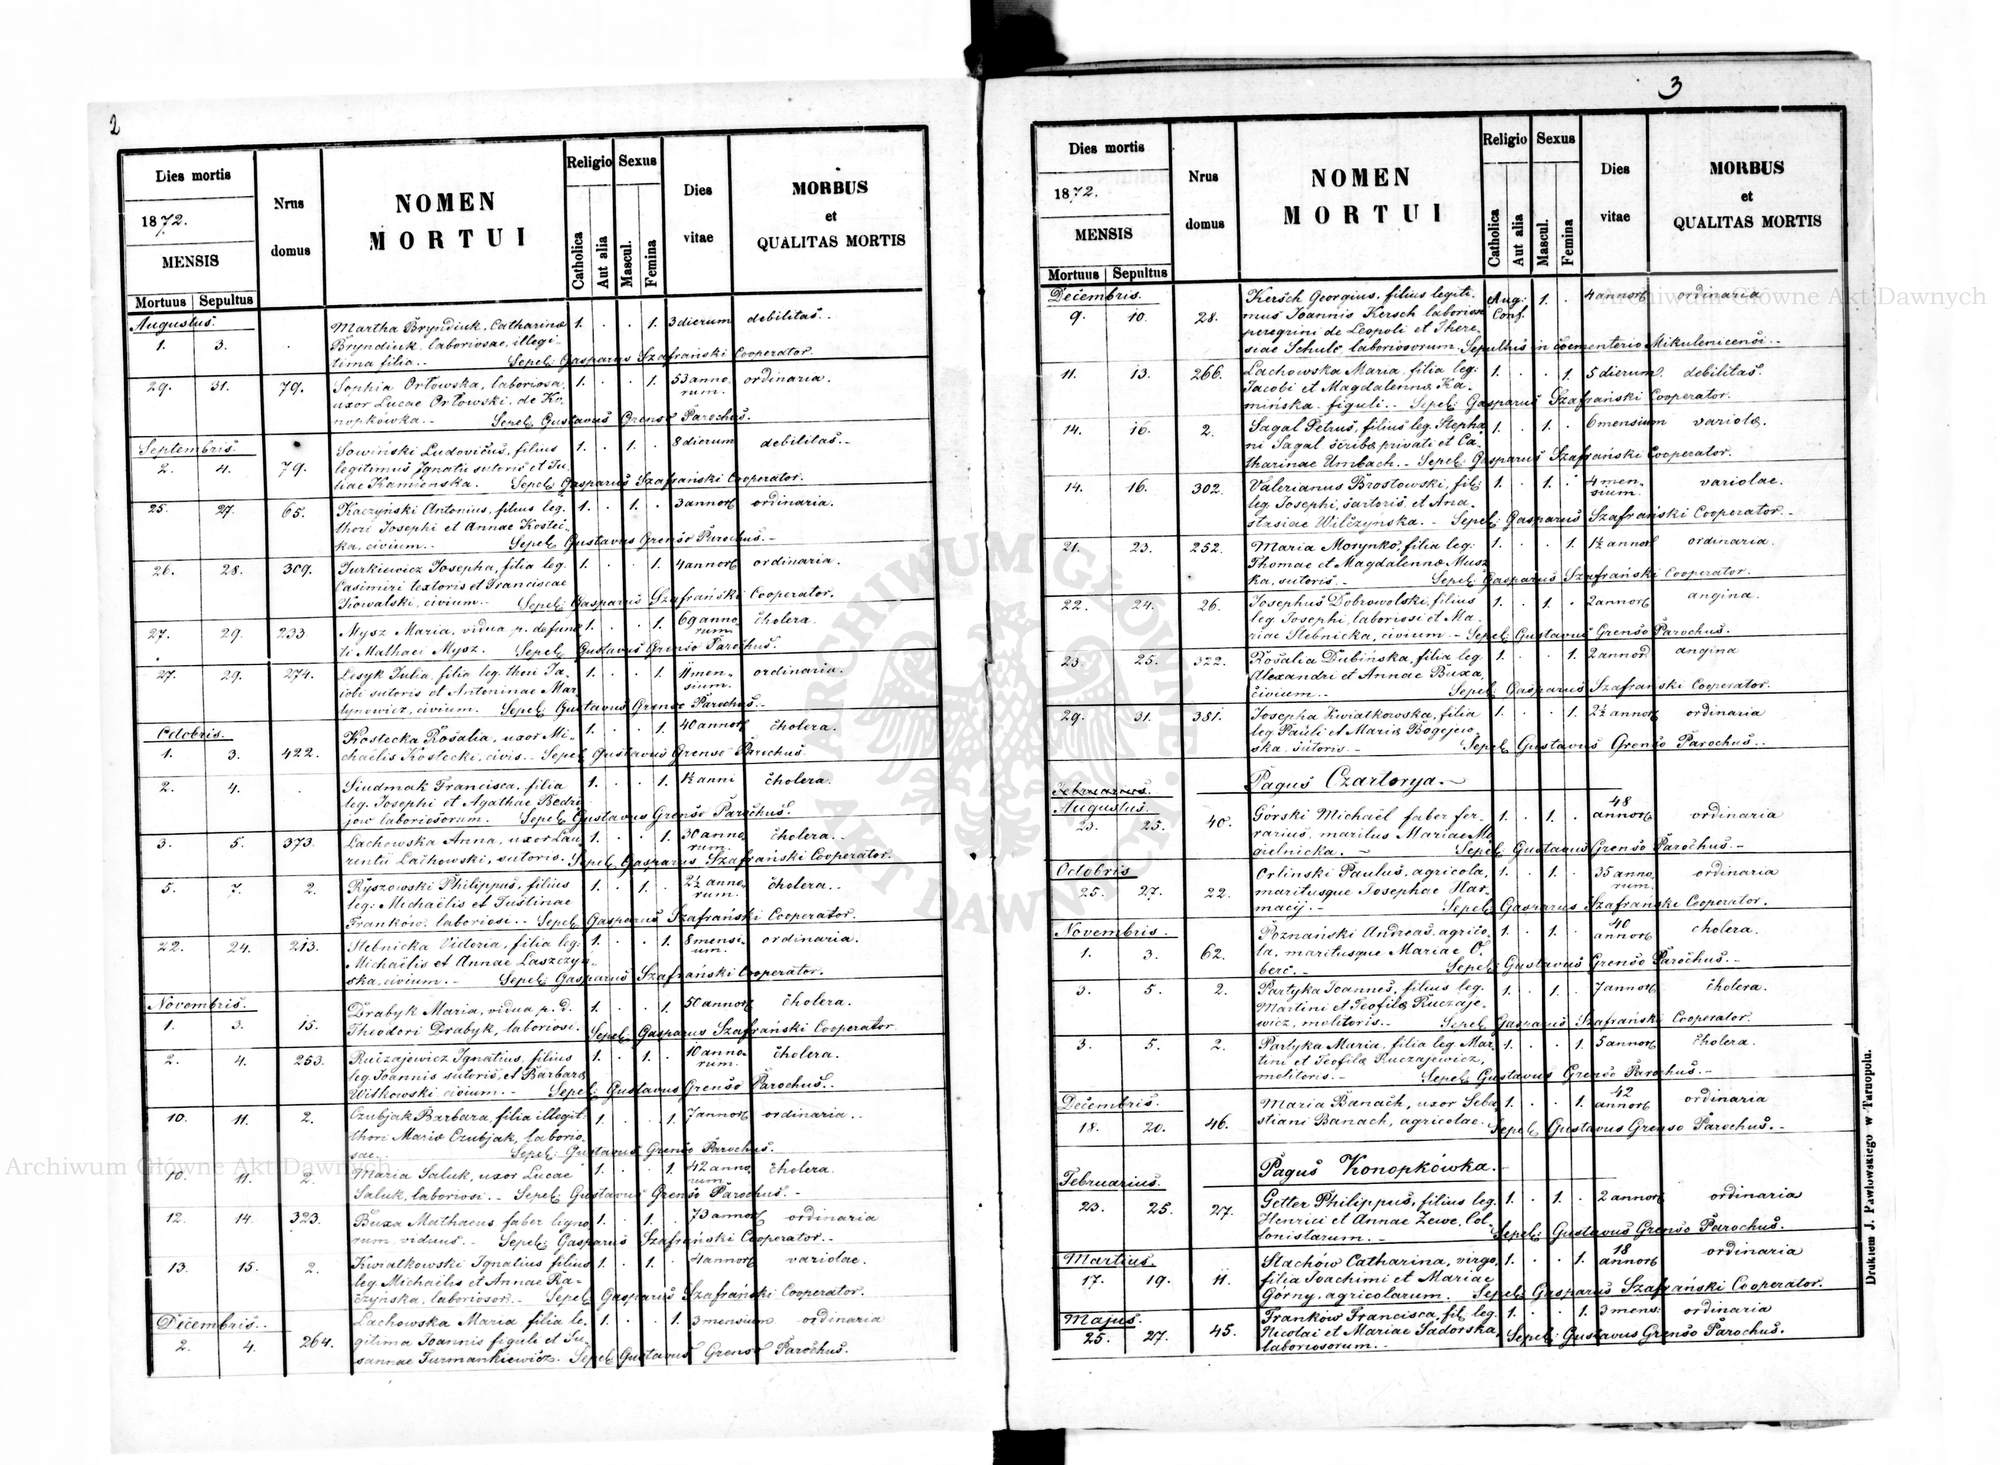 2
Dies mortis
1872.
MENSIS
Mortuus | Sepultus
Nrus
domus
NOMEN
MORTUI
Religio
Catholica
Aut alia
Sexus
Mascul.
Femina
Dies
vitae
MORBUS
et
QUALITAS MORTIS
Augustus.
1. 3. . Martha Bryndiuk, Catharinae 1. . . 1. 3 dierum debilitas..
Bryndiuk, laboriosae, illegi-
tima filia.. Sepel: Gasparus Szafrański Cooperator.
29. 31. 79. Sophia Orłowska, laboriosa, 1. . . 1. 53 anno- ordinaria.
uxor Lucae Orłowski, de Ko- rum.
nopkówka.. Sepel. Gustavus Grenso Parochus.
Septembris.
2. 4. 79. Sowiński Ludovicus, filius 1. . 1. . 8 dierum debilitas..
legitimus Ignatii sutoris et Ju-
liae Kamienska. Sepel: Gasparus Szafrański Cooperator.
25. 27. 65. Kaczyński Antonius, filius leg. 1. . 1. . 3 annor ordinaria.
thori Josephi et Annae Kostec-
ka, civium.. Sepel. Gustavus Grenso Parochus.-
26. 28. 309. Jurkiewicz Josepha, filia leg. 1. . . 1. 4 annor ordinaria.
Casimiri textoris et Franciscae
Kowalski, civium.. Sepel: Gasparus Szafrański Cooperator.
27. 29. 233. Mysz Maria, vidua p. defunc- 1. . . 1. 69 anno- cholera.
ti Mathaei Mysz. Sepel. Gustavus Grenso Parochus.
27. 29. 274. Lesyk Julia, filia leg. thori Ja- 1. . . 1. 11 men- ordinaria.
cobi sutoris et Antoninae Mar- sium.
tynowicz, civium. Sepel. Gustavus Grenso Parochus.-
Octobris.
1. 3. 422. Kostecka Rosalia, uxor Mi- 1. . . 1. 40 annor cholera.
chaëlis Kostecki, civis.. Sepel. Gustavus Grenso Parochus.
2. 4. . Siudmak Francisca, filia 1. . . 1. 1½ anni cholera.
leg. Josephi et Agathae Bedry-
jow laboriosorum. Sepel. Gustavus Grenso Parochus.
3. 5. 373. Lachowska Anna, uxor Lau- 1. . . 1. 30 anno- cholera..
rentii Lachowski, sutoris. Sepel. Gasparus Szafrański Cooperator.
5. 7. 2. Ryszowski Philippus, filius 1. . 1. . 2½ anno- cholera..
leg: Michaëlis et Justinae rum.
Franków, laboriosi.. Sepel. Gasparus Szafrański Cooperator.
22. 24. 213. Stebnicka Victoria, filia leg. 1. . . 1. 8 mensi- ordinaria.
Michaëlis et Annae Laszczyn- um.
ska, civium.- Sepel. Gasparus Szafrański Cooperator.
Novembris.
1. 3. 15. Drabyk Maria, vidua p. d. 1. . . 1. 50 annor cholera.
Theodori Drabyk, laboriosi. Sepel. Gasparus Szafrański Cooperator
2. 4. 253. Ruczajewicz Ignatius, filius 1. . 1. . 10 anno- cholera.
leg. Joannis sutoris, et Barbara rum.
Witkowski civium.- Sepel: Gustavus Grenso Parochus..
10. 11. 2. Czubjak Barbara, filia illegit. 1. . . 1. 7 annor ordinaria..
thori Mariae Czubjak, laborio-
sae. Sepel: Gustavus Grenso Parochus.
10. 11. 2. Maria Saluk, uxor Lucae 1. . . 1. 42 anno- cholera.
Saluk, laboriosi.- Sepel: Gustavus Grenso Parochus.-
12. 14. 323. Buxa Mathaeus faber ligno- 1. . 1. . 73 annor ordinaria
rum, viduus.- Sepel: Gasparus Szafrański Cooperator.-
13. 15. 2. Kwiatkowski Ignatius filius 1. . 1. . 4 annor variolae.
leg. Michaëlis et Annae Ra-
czyńska, laborioso.- Sepel: Gasparus Szafrański Cooperator.
Decembris..
2. 4. 264. Lachowska Maria filia le- 1. . . 1. 3 mensium ordinaria
gitima Joannis figuli et Su-
sannae Turmankiewicz. Sepel. Gustavus Grenso Parochus.
3
Dies mortis
1872.
MENSIS
Mortuus | Sepultus
Nrus
domus
NOMEN
MORTUI
Religio
Catholica
Aut alia
Sexus
Mascul.
Femina
Dies
vitae
MORBUS
et
QUALITAS MORTIS
Decembris.
9. 10. 28. Kersch Georgius, filius legiti- Aug: 1. . 4 annor ordinaria
mus Joannis Kersch laboriosi Conf.
peregrini de Leopoli et There-
siae Schulc, laboriosorum. Sepultus in coementerio Mikulenicensi..
11. 13. 266. Lachowska Maria, filia leg: 1. . . 1. 5 dierum. debilitas.
Jacobi et Magdalenae Ka-
mińska, figuli.. Sepel: Gasparus Szafrański Cooperator.
14. 16. 2. Sagal Petrus, filius leg. Stepha- 1. . 1. . 6 mensium variolae.
ni Sagal scribae privati et Ca-
tharinae Umbach.. Sepel: Gasparus Szafrański Cooperator.
14. 16. 302. Valerianus Brostowski, fil: 1. . 1. . 4 men- variolae.
leg. Josephi, sartoris, et Ana- sium.
stasiae Wilczynska.- Sepel: Gasparus Szafrański Cooperator.-
21. 23. 252. Maria Morynko, filia leg: 1. . . 1. 1½ annor ordinaria.
Thomae et Magdalenae Musz-
ka, sutoris.- Sepel: Gasparus Szafrański Cooperator.
22. 24. 26. Josephus Dobrowolski, filius 1. . 1. . 2 annor angina.
leg. Josephi, laboriosi et Ma-
riae Stebnicka, civium.- Sepel. Gustavus Grenso Parochus.
23. 25. 322. Rosalia Dubińska, filia leg. 1. . . 1. 2 annor angina
Alexandri et Annae Buxa,
civium.. Sepel: Gasparus Szafrański Cooperator.
29. 31. 381. Josepha Kwiatkowska, filia 1. . . 1. 2½ annor ordinaria
leg Pauli et Mariae
ska, sutoris.- Sepel. Gustavus Grenso Parochus..
Pagus Czartorya.-
Februarius.
Augustus.
23. 25. 40. Górski Michaël faber fer- 1. . 1. . 48 annor ordinaria
rarius, maritus Mariae Mo-
gielnicka.- Sepel. Gustavus Grenso Parochus.-
Octobris
25. 27. 22. Orlinski Paulus, agricola, 1. . 1. . 35 anno- ordinaria
maritusque Josephae Har- rum.
macij.- Sepel. Gasparus Szafrański Cooperator.
Novembris.
1. 3. 62. Poznański Andreas, agrico- 1. . 1. . 40 annor cholera.
la, maritusque Mariae O-
berc.- Sepel: Gustavus Grenso Parochus.-
3. 5. 2. Partyka Joannes, filius leg. 1. . 1. . 7 annor cholera.
Martini et Teofilae Ruczaje-
wicz, molitoris.. Sepel: Gasparus Szafrański Cooperator.
3. 5. 2. Partyka Maria, filia leg Mar- 1. . . 1. 5 annor cholera.
tini et Teofilae Ruczajewicz,
molitoris.- Sepel. Gustavus Grenso Parochus.-
Decembris.
18. 20. 46. Maria Banach, uxor Seba- 1. . . 1. 42 annor ordinaria
stiani Banach, agricolae. Sepel. Gustavus Grenso Parochus.-
Pagus Konopkówka.-
Februarius.
23. 25. 27. Getter Philippus, filius leg. 1. . 1. . 2 annor ordinaria
Henrici et Annae Zewe, Col-
lonistarum.- Sepel: Gustavus Grenso Parochus.
Martius.
17. 19. 11. Stachów Catharina, virgo, 1. . . 1. 18 annor ordinaria
filia Joachimi et Mariae
Górny, agricolarum. Sepel. Gasparus Szafrański Cooperator.
Majus.
25. 27. 45. Franków Francisca, fil. leg. 1. . . 1. 3 mens. ordinaria
Nicolai et Mariae Sadorska, Sepel: Gustavus Grenso Parochus.
laboriosorum.-
Drukiem J. Pawłowskiego w Tarnopolu.
ARCHIWUM GŁÓWNE AKT DAWNYCH
Archiwum Główne Akt Dawnych
Archiwum Główne Akt Dawnych